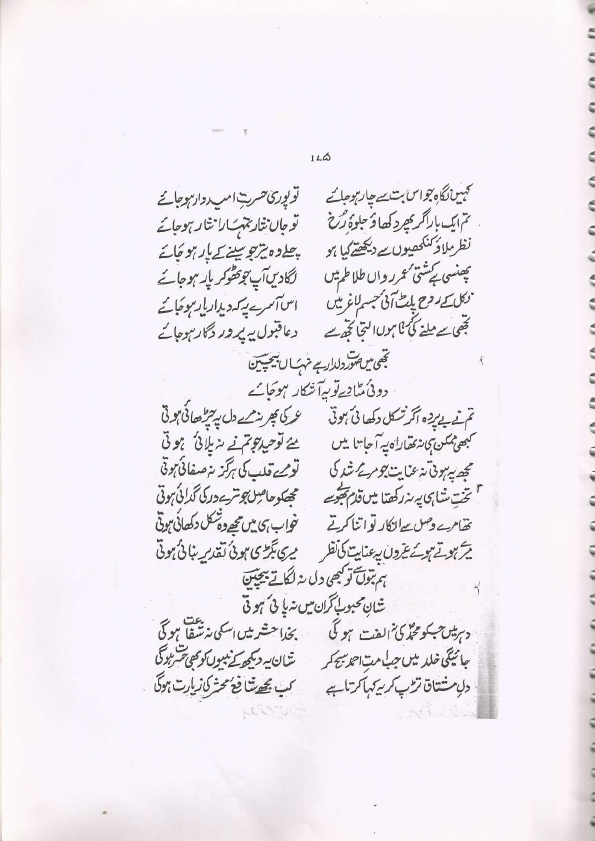 ۱۸۵
کہیں نگاہ جو اس بت سے چار ہو جائے تو پوری حسرتِ امیدوار ہو جائے
تم ایک بار اگر پھر دکھاؤ جلوۂ رُخ تو جاں نثار تمہارا نثار ہو جائے
نظر ملاؤ کنکھیوں سے دیکھتے کیا ہو چلے وہ تیر جو سینے کے پار ہو جائے
پھنسی ہے کشتیِ عمرِ رواں طلاطم میں لگادیں آپ جو ٹھوکر پار ہو جائے
نکل کے روح پلٹ آئی جسمِ لاغر میں اس آسرے پہ کہ دیدارِ یار ہو جائے
تجھی سے ملنے کی کرتا ہوں التجا تجھ سے دعا قبول یہ پروردگار ہو جائے
تجھی میں صورتِ دلدار ہے نہاں بیچینؔ
دوئی مٹا دے تو یہ آشکار ہو جائے
تم نے بے پردہ اگر شکل دکھائی ہوتی عمر کی پھر نہ مرے دل پہ چڑھائی ہوتی
کبھی ممکن ہی نہ تھا راہ پہ آجاتا میں مئے توحید جو تم نے نہ پلائی ہوتی
مجھ پہ ہوتی نہ عنایت جو مرے مرشد کی تو مرے قلب کی ہرگز نہ صفائی ہوتی
تختِ شاہی پہ نہ رکھتا میں قدم بھولے سے مجھکو حاصل جو ترے در کی گدائی ہوتی
تھا مرے وصل سے انکار تو اتنا کرتے خواب ہی میں مجھے وہ شکل دکھائی ہوتی
میرے ہوتے ہوئے غیروں پہ عنایت کی نظر میری بگڑی ہوئی تقدیر بنائی ہوتی
ہم بتوں سے تو کبھی دل نہ لگاتے بیچینؔ
شانِ محبوب اگر ان میں نہ پائی ہوتی
دہر میں جس کو محمدؐ کی نہ الفت ہوگی بخدا حشر میں اسکی نہ شفاعت ہوگی
جائیگی خلد میں جب امتِ احمد سج کر شان یہ دیکھ کے نبیوں کو بھی حسرت ہوگی
دلِ مشتاق تڑپ کر یہ کہا کرتا ہے کب مجھے شافعِ محشر کی زیارت ہوگی